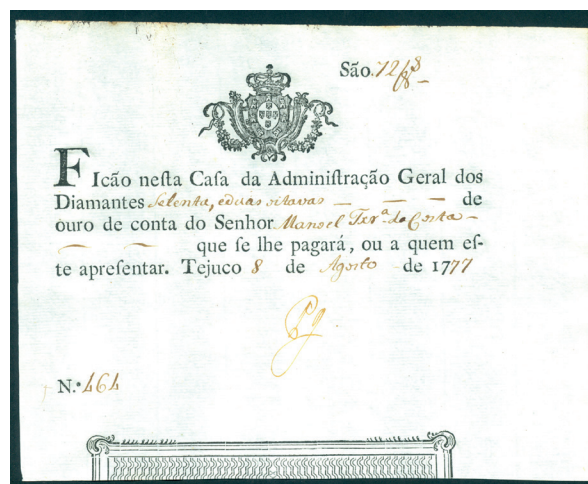 São. 72/8ˢ
Ficão neſta Caſa da Adminiſtração Geral dos
Diamantes Setenta, e duas oitavas de
ouro de conta do Senhor Manoel Ferᵃ da Costa
que ſe lhe pagará, ou a quem eſ-
te apreſentar. Tejuco 8 de Agosto de 1777
N.º 464